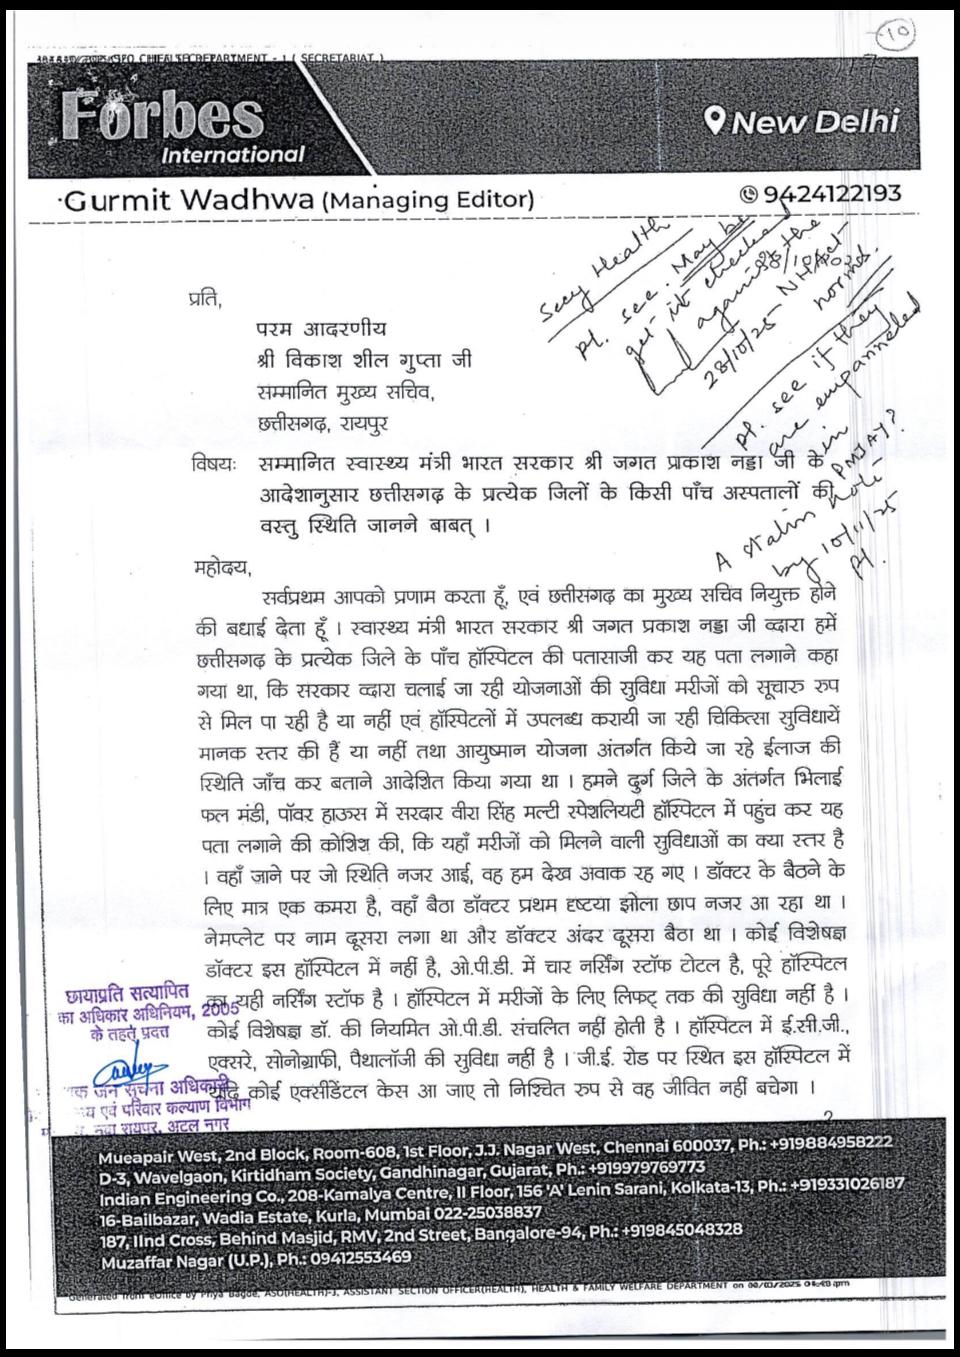 10
CHIEF SECRETARY DEPARTMENT - 1 ( SECRETARIAT )
Forbes
International
New Delhi
Gurmit Wadhwa (Managing Editor)
9424122193
Secy Health
Pl. see. May be
get it checked
against the
norms.
28/10/25
Pl. see if they
are empanneled
in PMJAY?
A note
by 10/11/25
Pl.
प्रति,
परम आदरणीय
श्री विकाश शील गुप्ता जी
सम्मानित मुख्य सचिव,
छत्तीसगढ़, रायपुर
विषयः सम्मानित स्वास्थ्य मंत्री भारत सरकार श्री जगत प्रकाश नड्डा जी के
आदेशानुसार छत्तीसगढ़ के प्रत्येक जिलों के किसी पाँच अस्पतालों की
वस्तु स्थिति जानने बाबत् ।
महोदय,
सर्वप्रथम आपको प्रणाम करता हूँ, एवं छत्तीसगढ़ का मुख्य सचिव नियुक्त होने
की बधाई देता हूँ । स्वास्थ्य मंत्री भारत सरकार श्री जगत प्रकाश नड्डा जी व्दारा हमें
छत्तीसगढ़ के प्रत्येक जिले के पाँच हॉस्पिटल की पतासाजी कर यह पता लगाने कहा
गया था, कि सरकार व्दारा चलाई जा रही योजनाओं की सुविधा मरीजों को सूचारु रुप
से मिल पा रही है या नहीं एवं हॉस्पिटलों में उपलब्ध करायी जा रही चिकित्सा सुविधायें
मानक स्तर की हैं या नहीं तथा आयुष्मान योजना अंतर्गत किये जा रहे ईलाज की
स्थिति जाँच कर बताने आदेशित किया गया था । हमने दुर्ग जिले के अंतर्गत भिलाई
फल मंडी, पॉवर हाऊस में सरदार वीरा सिंह मल्टी स्पेशलियटी हॉस्पिटल में पहुंच कर यह
पता लगाने की कोशिश की, कि यहाँ मरीजों को मिलने वाली सुविधाओं का क्या स्तर है
। वहाँ जाने पर जो स्थिति नजर आई, वह हम देख अवाक रह गए । डॉक्टर के बैठने के
लिए मात्र एक कमरा है, वहाँ बैठा डॉक्टर प्रथम दृष्टया झोला छाप नजर आ रहा था ।
नेमप्लेट पर नाम दूसरा लगा था और डॉक्टर अंदर दूसरा बैठा था । कोई विशेषज्ञ
डॉक्टर इस हॉस्पिटल में नहीं है, ओ.पी.डी. में चार नर्सिंग स्टॉफ टोटल है, पूरे हॉस्पिटल
का यही नर्सिंग स्टॉफ है । हॉस्पिटल में मरीजों के लिए लिफ्ट् तक की सुविधा नहीं है ।
कोई विशेषज्ञ डॉ. की नियमित ओ.पी.डी. संचलित नहीं होती है । हॉस्पिटल में ई.सी.जी.,
एक्सरे, सोनोग्राफी, पैथालॉजी की सुविधा नहीं है । जी.ई. रोड पर स्थित इस हॉस्पिटल में
यदि कोई एक्सीडेंटल केस आ जाए तो निश्चित रुप से वह जीवित नहीं बचेगा ।
छायाप्रति सत्यापित
का अधिकार अधिनियम, 2005
के तहत् प्रदत्त
क जन सूचना अधिकारी
एवं परिवार कल्याण विभाग
रायपुर, अटल नगर
Mueapair West, 2nd Block, Room-608, 1st Floor, J.J. Nagar West, Chennai 600037, Ph.: +919884958222
D-3, Wavelgaon, Kirtidham Society, Gandhinagar, Gujarat, Ph.: +919979769773
Indian Engineering Co., 208-Kamalya Centre, II Floor, 156 'A' Lenin Sarani, Kolkata-13, Ph.: +919331026187
16-Bailbazar, Wadia Estate, Kurla, Mumbai 022-25038837
187, IInd Cross, Behind Masjid, RMV, 2nd Street, Bangalore-94, Ph.: +919845048328
Muzaffar Nagar (U.P.), Ph.: 09412553469
Generated from eOffice by Priya Bagde, ASO(HEALTH)-J, ASSISTANT SECTION OFFICER(HEALTH), HEALTH & FAMILY WELFARE DEPARTMENT on